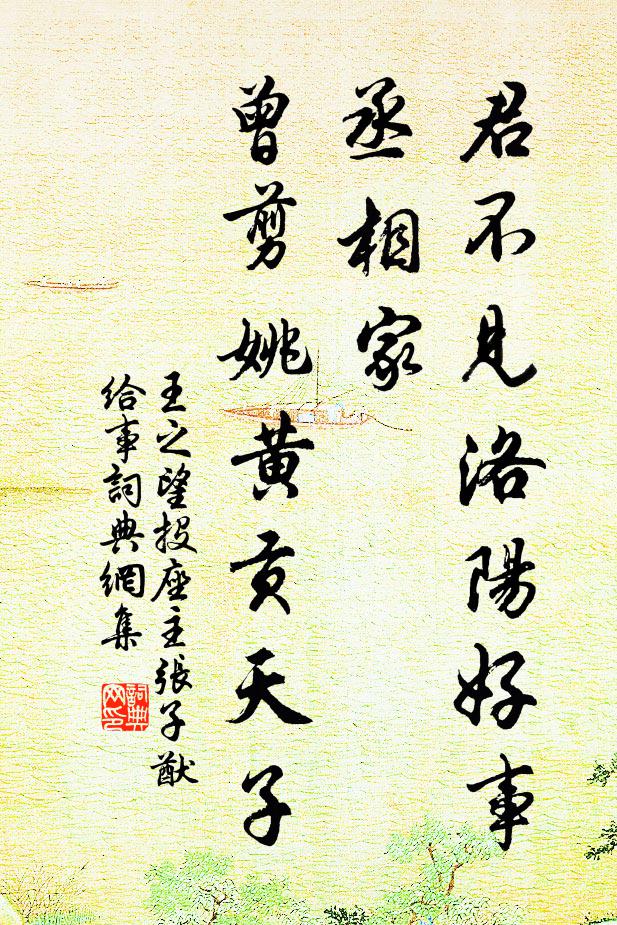 君不見洛陽好事
丞相家
曾剪姚黃貢天子
王之望投座主張子猷
給事詞典網集
詞典
网印